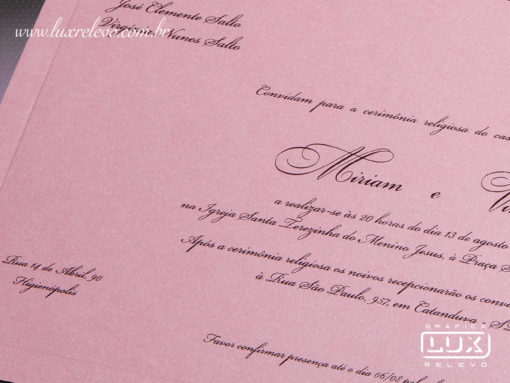 José Clemente Salto
www.luxrelevo.com.br
Nunes Salto
Convidam para a cerimônia religiosa do cas
Miriam e Vi
a realizar-se às 20 horas do dia 13 de agosto
na Igreja Santa Terezinha do Menino Jesus, à Praça S
Após a cerimônia religiosa os noivos recepcionarão os conv
à Rua São Paulo, 937, em Catanduva - S
Rua 14 de Abril, 90
Higienópolis
Favor confirmar presença até o dia 06/08
GRÁFICA
LUX
RELEVO